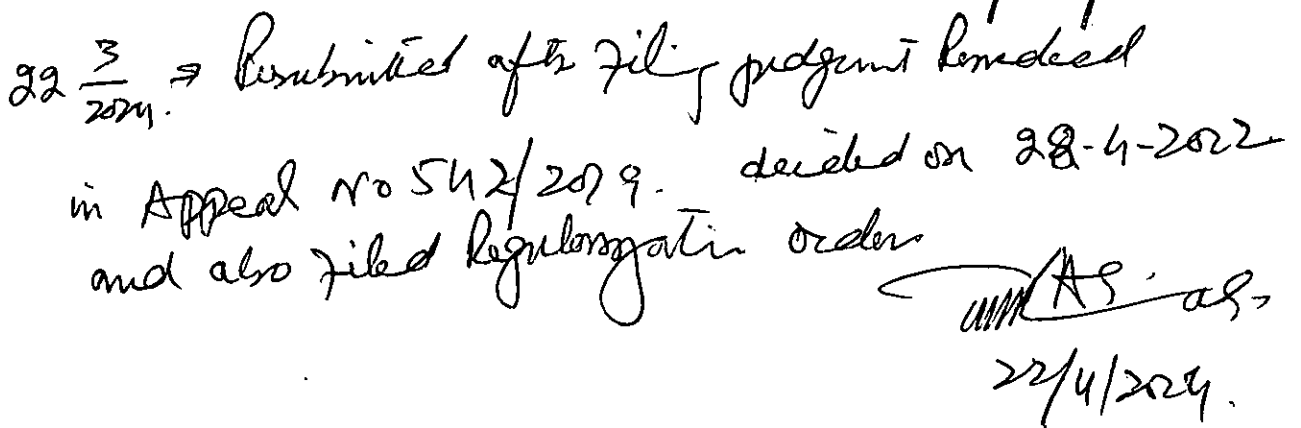 22 3/2024. ⇒ Resubmitted after Filing judgment Remedeed
in Appeal No 542/2019. decided on 28-4-2022
and also Filed Regularization order
22/4/2024.